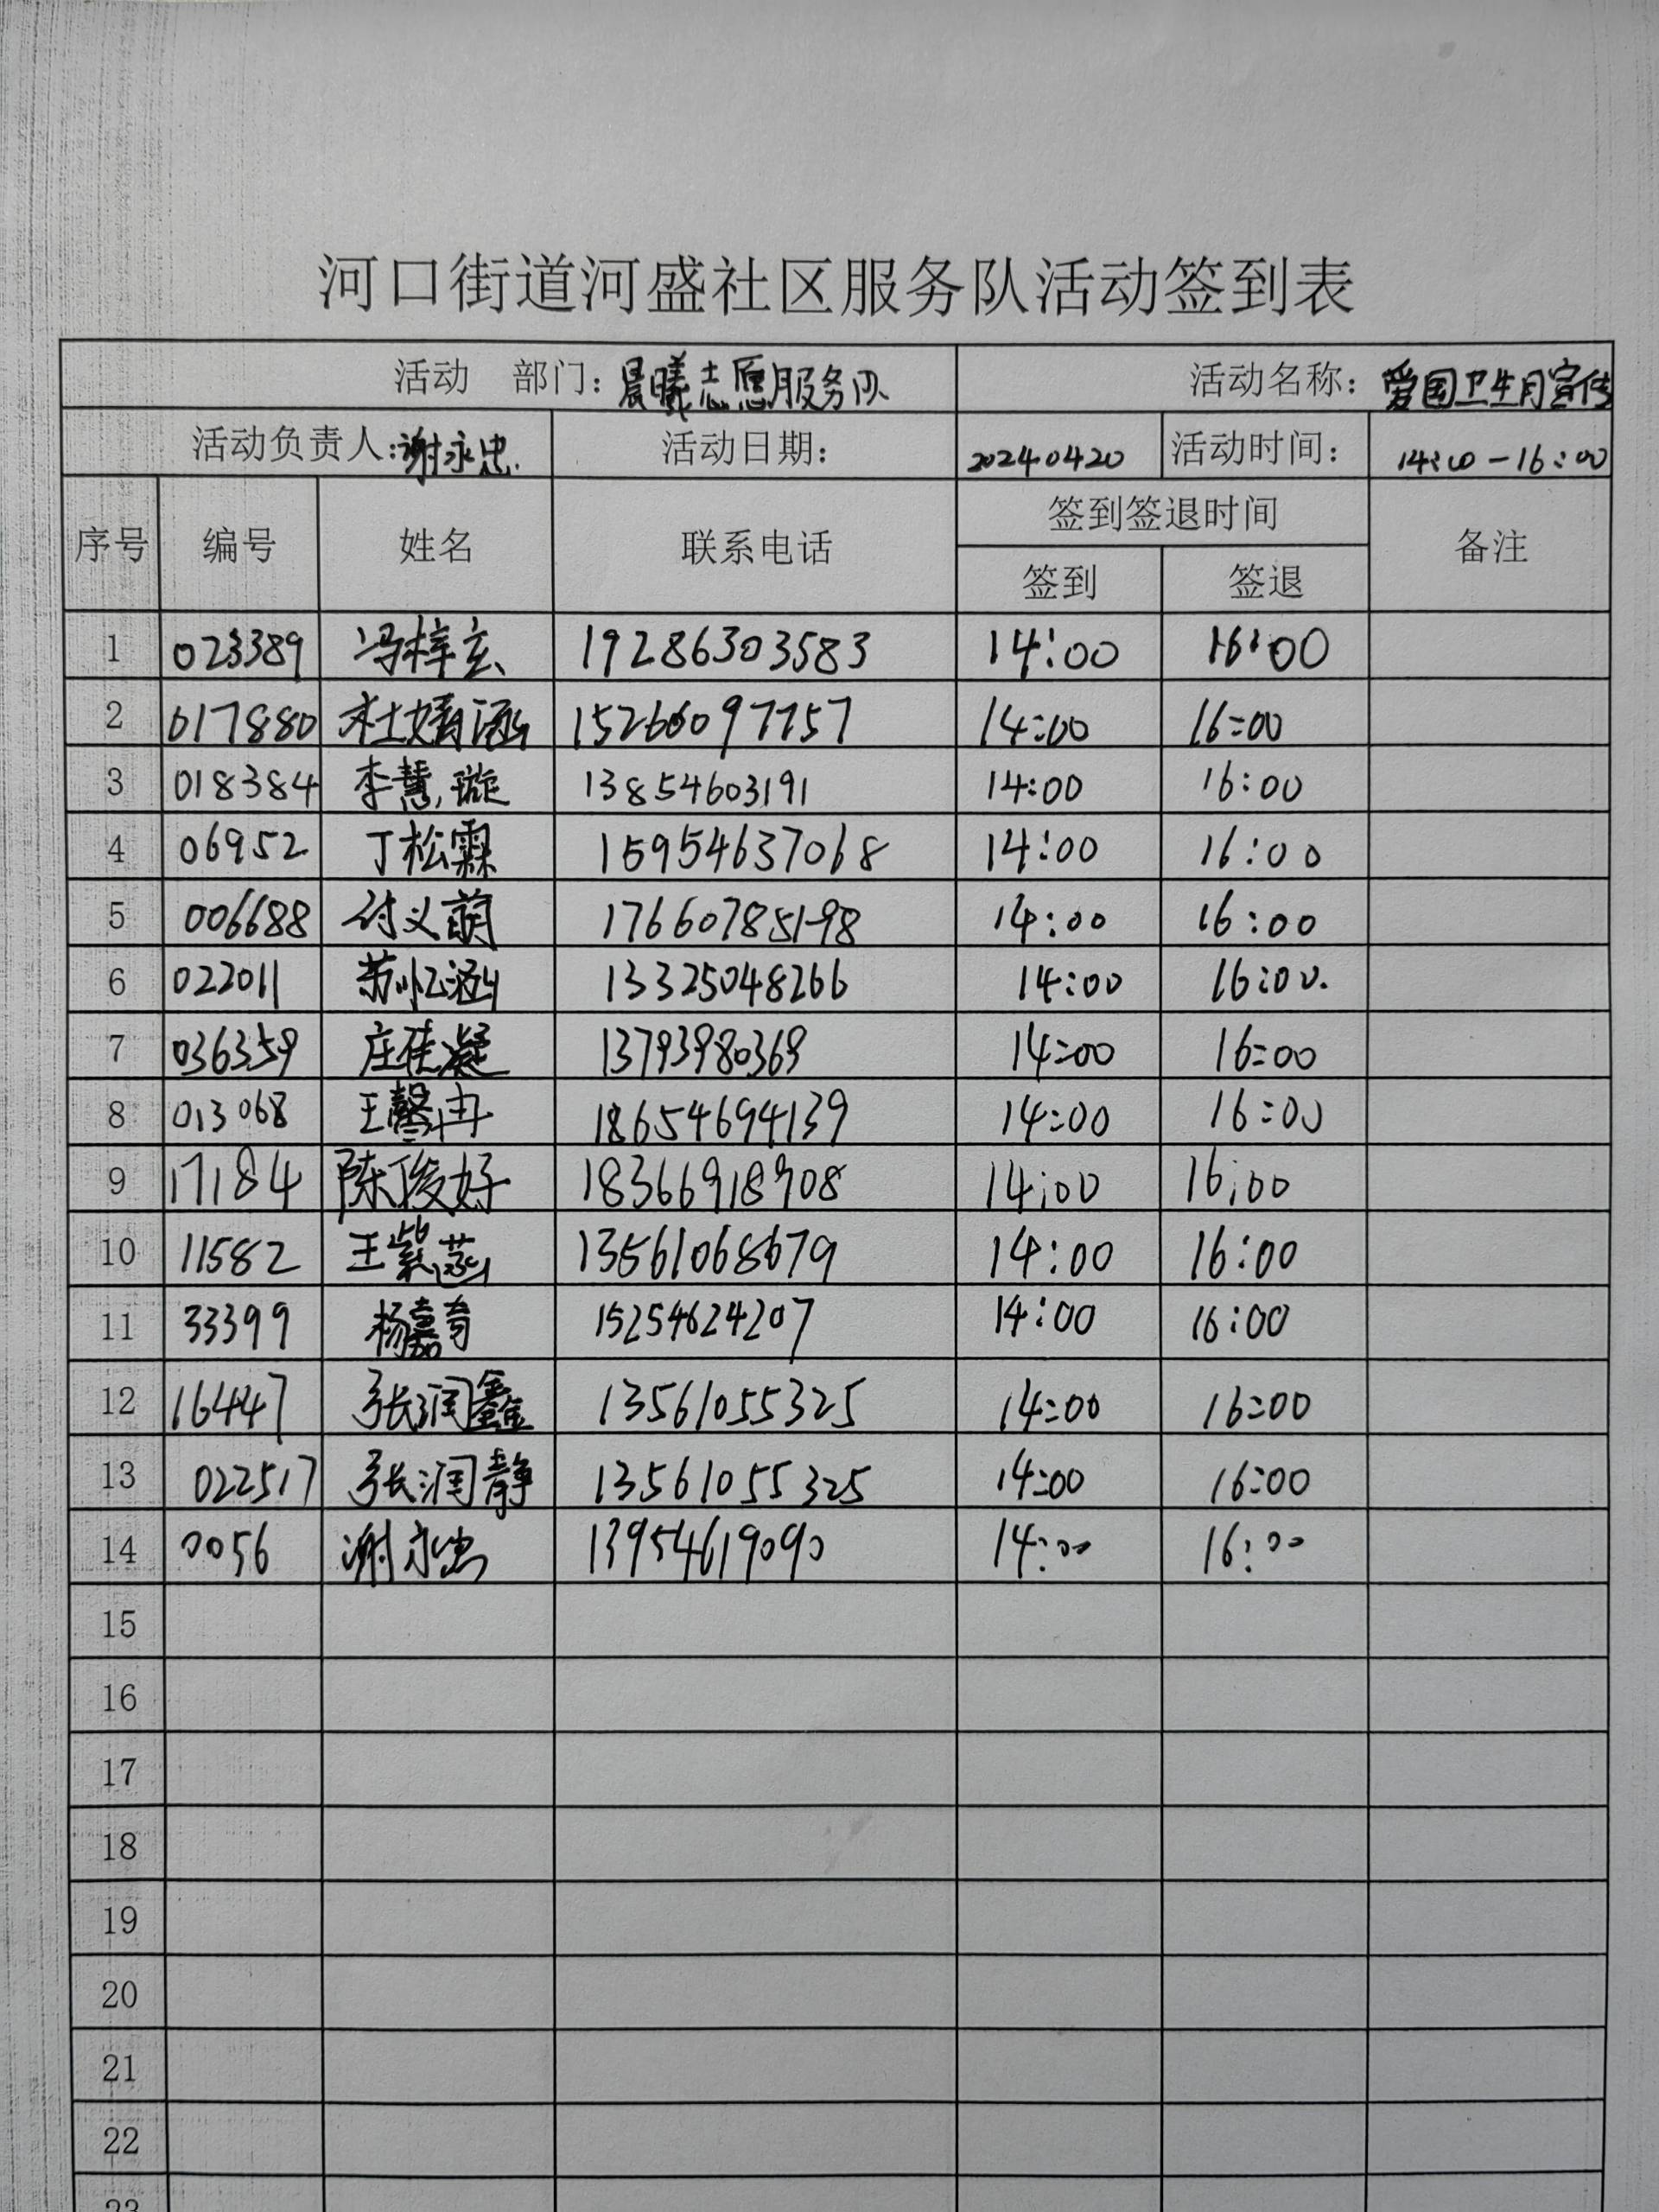 河口街道河盛社区服务队活动签到表
活动 部门：晨曦志愿服务队 活动名称：爱国卫生月宣传
活动负责人：谢永忠 活动日期： 20240420 活动时间： 14:00-16:00
序号 编号 姓名 联系电话 签到签退时间 备注
签到 签退
1 023389 冯梓玄 19286303583 14:00 16:00
2 017880 杜婧涵 15266097757 14:00 16:00
3 018384 李慧璇 13854603191 14:00 16:00
4 06952 丁松霖 15954637068 14:00 16:00
5 006688 付义萌 17660785198 14:00 16:00
6 022011 苏忆涵 13325048266 14:00 16:00.
7 036359 庄佳凝 13793980369 14:00 16:00
8 013068 王馨冉 18654694139 14:00 16:00
9 17184 陈俊好 18366918908 14:00 16:00
10 11582 王紫菡 13561068679 14:00 16:00
11 33399 杨嘉奇 15254624207 14:00 16:00
12 16447 张润鑫 13561055325 14:00 16:00
13 022517 张润静 13561055325 14:00 16:00
14 0056 谢永忠 13954619090 14:00 16:00
15
16
17
18
19
20
21
22
23